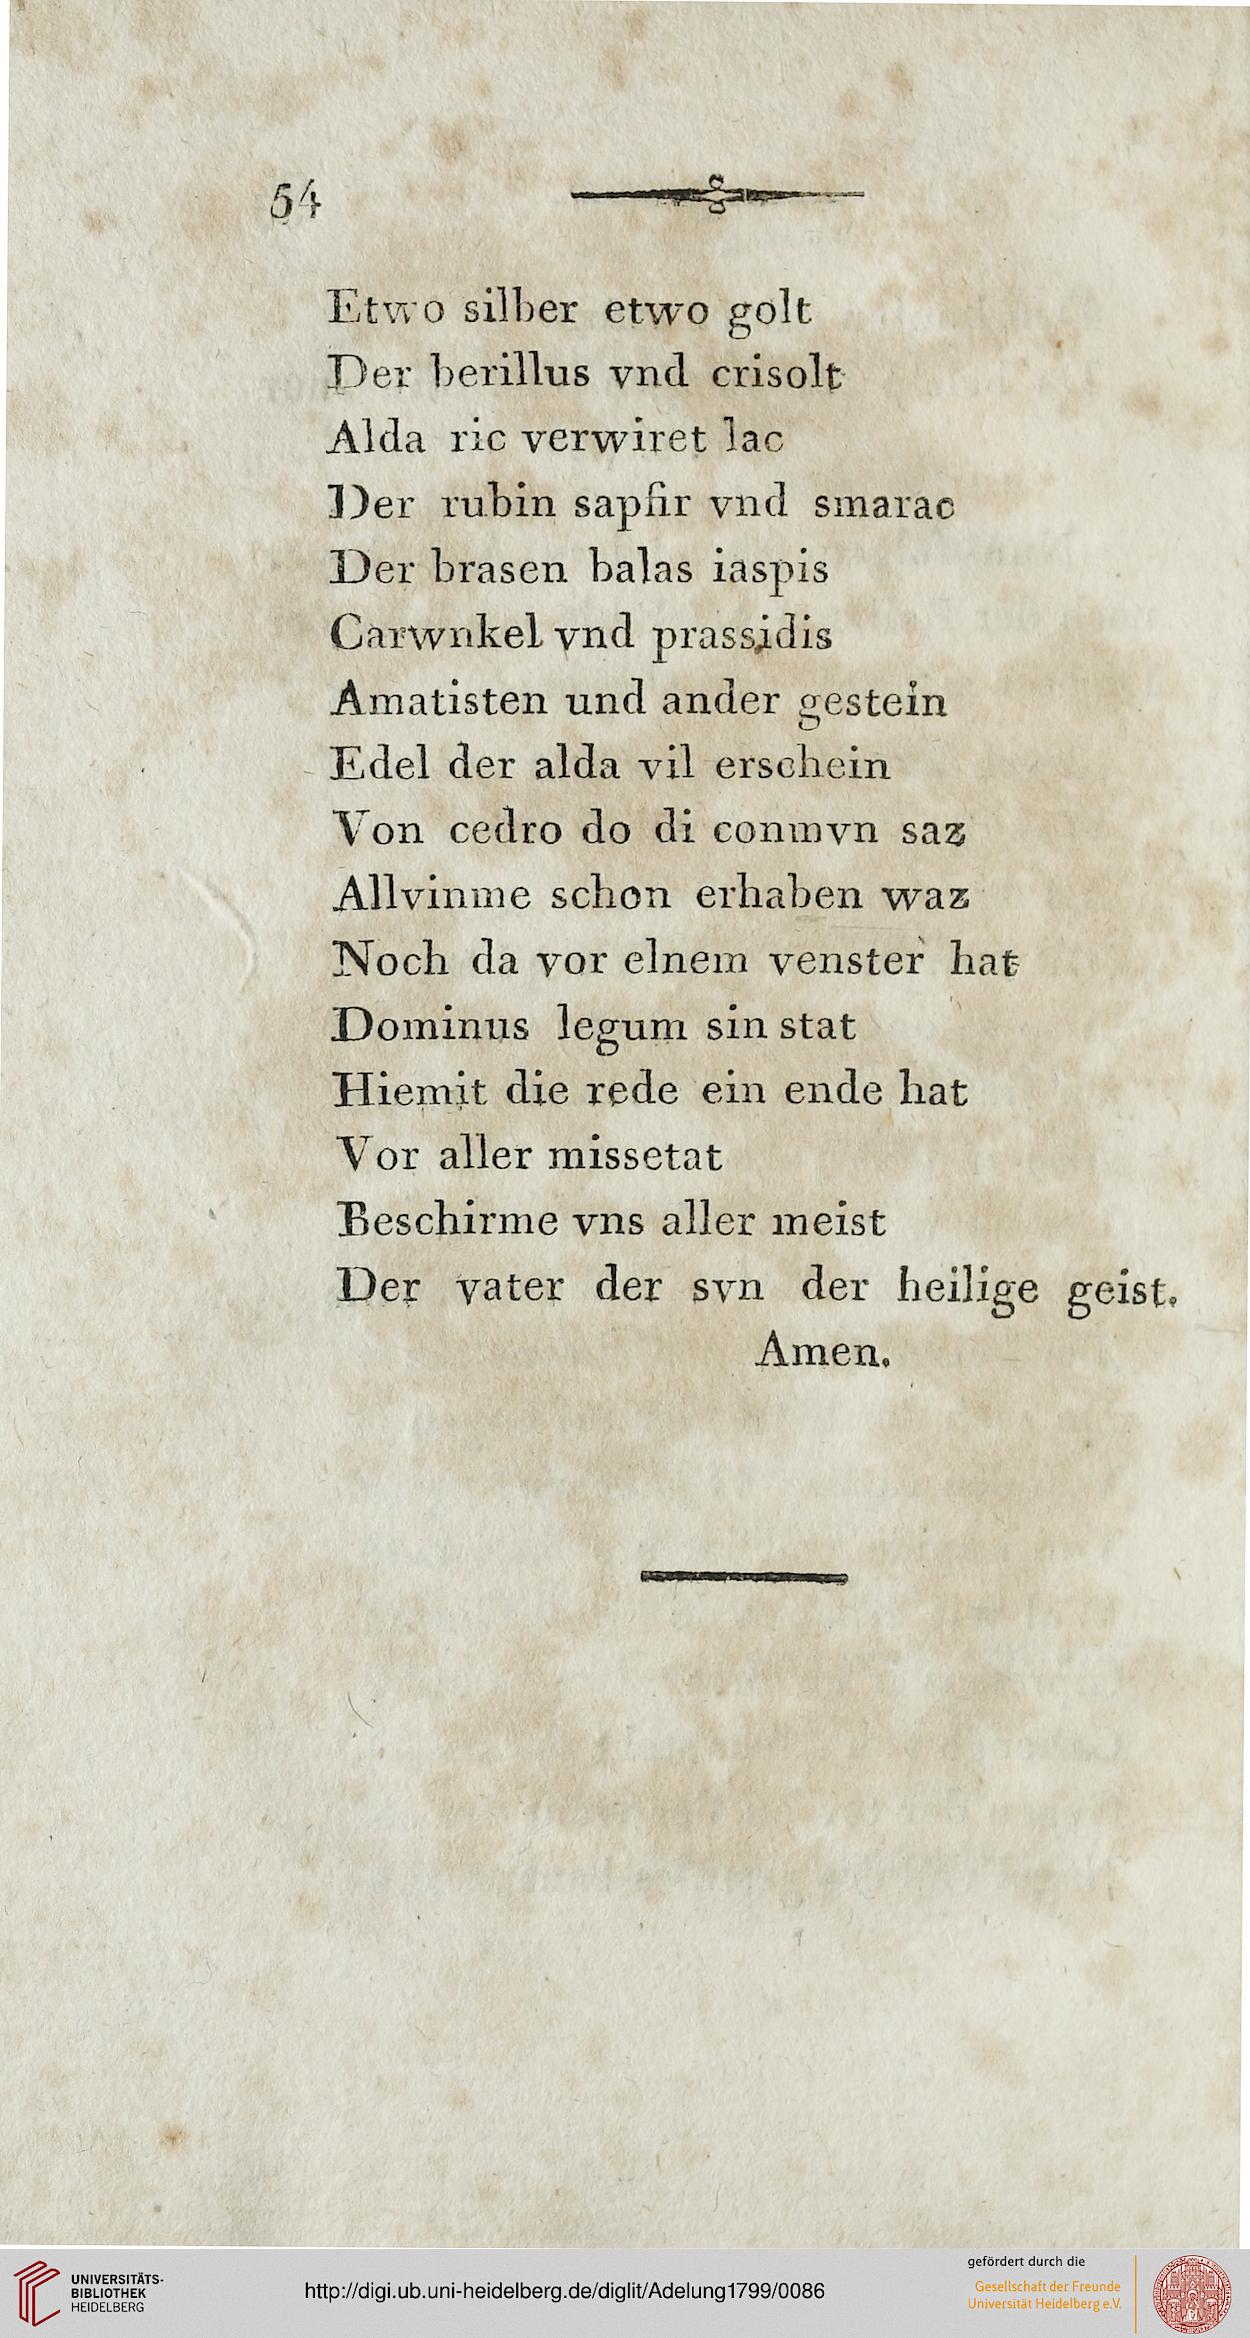 54
Etwo silber etwo golt
Der berillus vnd crisolt
Alda ric verwiret lac
Der rubin sapfir vnd smarac
Der brasen balas iaspis
Carwnkel vnd prassidis
Amatisten und ander gestein
Edel der alda vil erschein
Von cedro do di conmvn saz
Allvinme schon erhaben waz
Noch da vor elnem venster hat
Dominus legum sin stat
Hiemit die rede ein ende hat
Vor aller missetat
Beschirme vns aller meist
Der vater der svn der heilige geist.
Amen.
UNIVERSITÄTS-
BIBLIOTHEK
HEIDELBERG
http://digi.ub.uni-heidelberg.de/diglit/Adelung1799/0086
gefördert durch die
Gesellschaft der Freunde
Universität Heidelberg e.V.